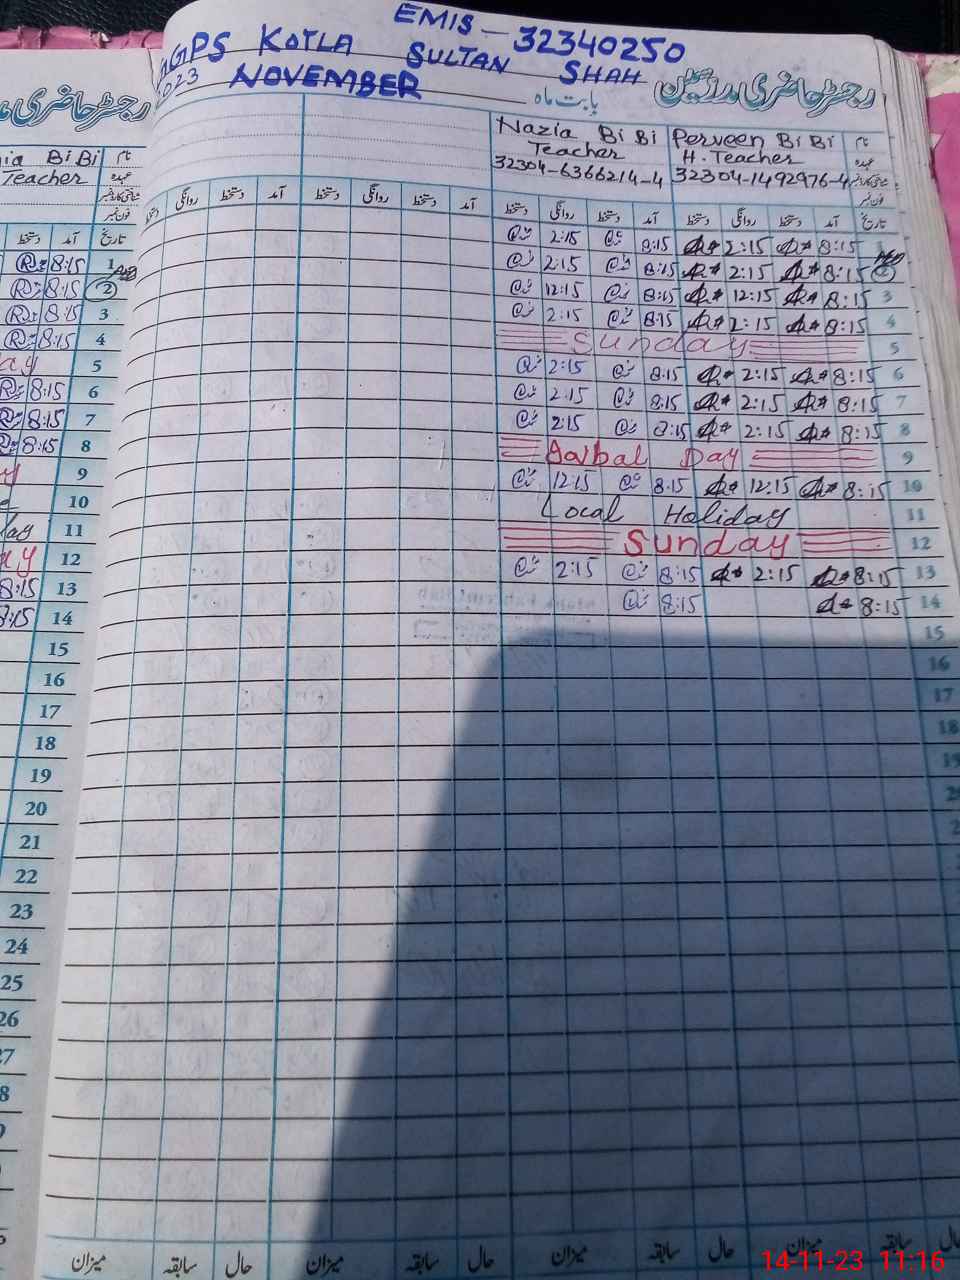 EMIS - 32340250
GGPS KOTLA SULTAN SHAH
2023 NOVEMBER
بابت ماہ
رجسٹر حاضری مدرسین
Nazia BiBi Perveen BiBi نام
Teacher H. Teacher عہدہ
32304-6366214-4 32304-1492976-4 شناختی کارڈ نمبر
فون نمبر
دستخط روانگی دستخط آمد دستخط روانگی دستخط آمد دستخط روانگی دستخط آمد دستخط روانگی دستخط آمد تاریخ
2:15 8:15 2:15 8:15 1
2:15 8:15 2:15 8:15 2
12:15 8:15 12:15 8:15 3
2:15 8:15 2:15 8:15 4
Sunday 5
2:15 8:15 2:15 8:15 6
2:15 8:15 2:15 8:15 7
2:15 8:15 2:15 8:15 8
Iqbal Day 9
12:15 8:15 12:15 8:15 10
Local Holiday 11
Sunday 12
2:15 8:15 2:15 8:15 13
8:15 8:15 14
15
16
17
18
19
میزان سابقہ حال میزان سابقہ حال میزان سابقہ حال میزان سابقہ حال
رجسٹر حاضری
BiBi نام
Teacher عہدہ
شناختی کارڈ نمبر
فون نمبر
دستخط آمد تاریخ
8:15 1
8:15 2
8:15 3
8:15 4
ay 5
8:15 6
8:15 7
8:15 8
y 9
10
day 11
ay 12
8:15 13
8:15 14
15
16
17
18
19
20
21
22
23
24
25
26
27
8
14-11-23 11:16